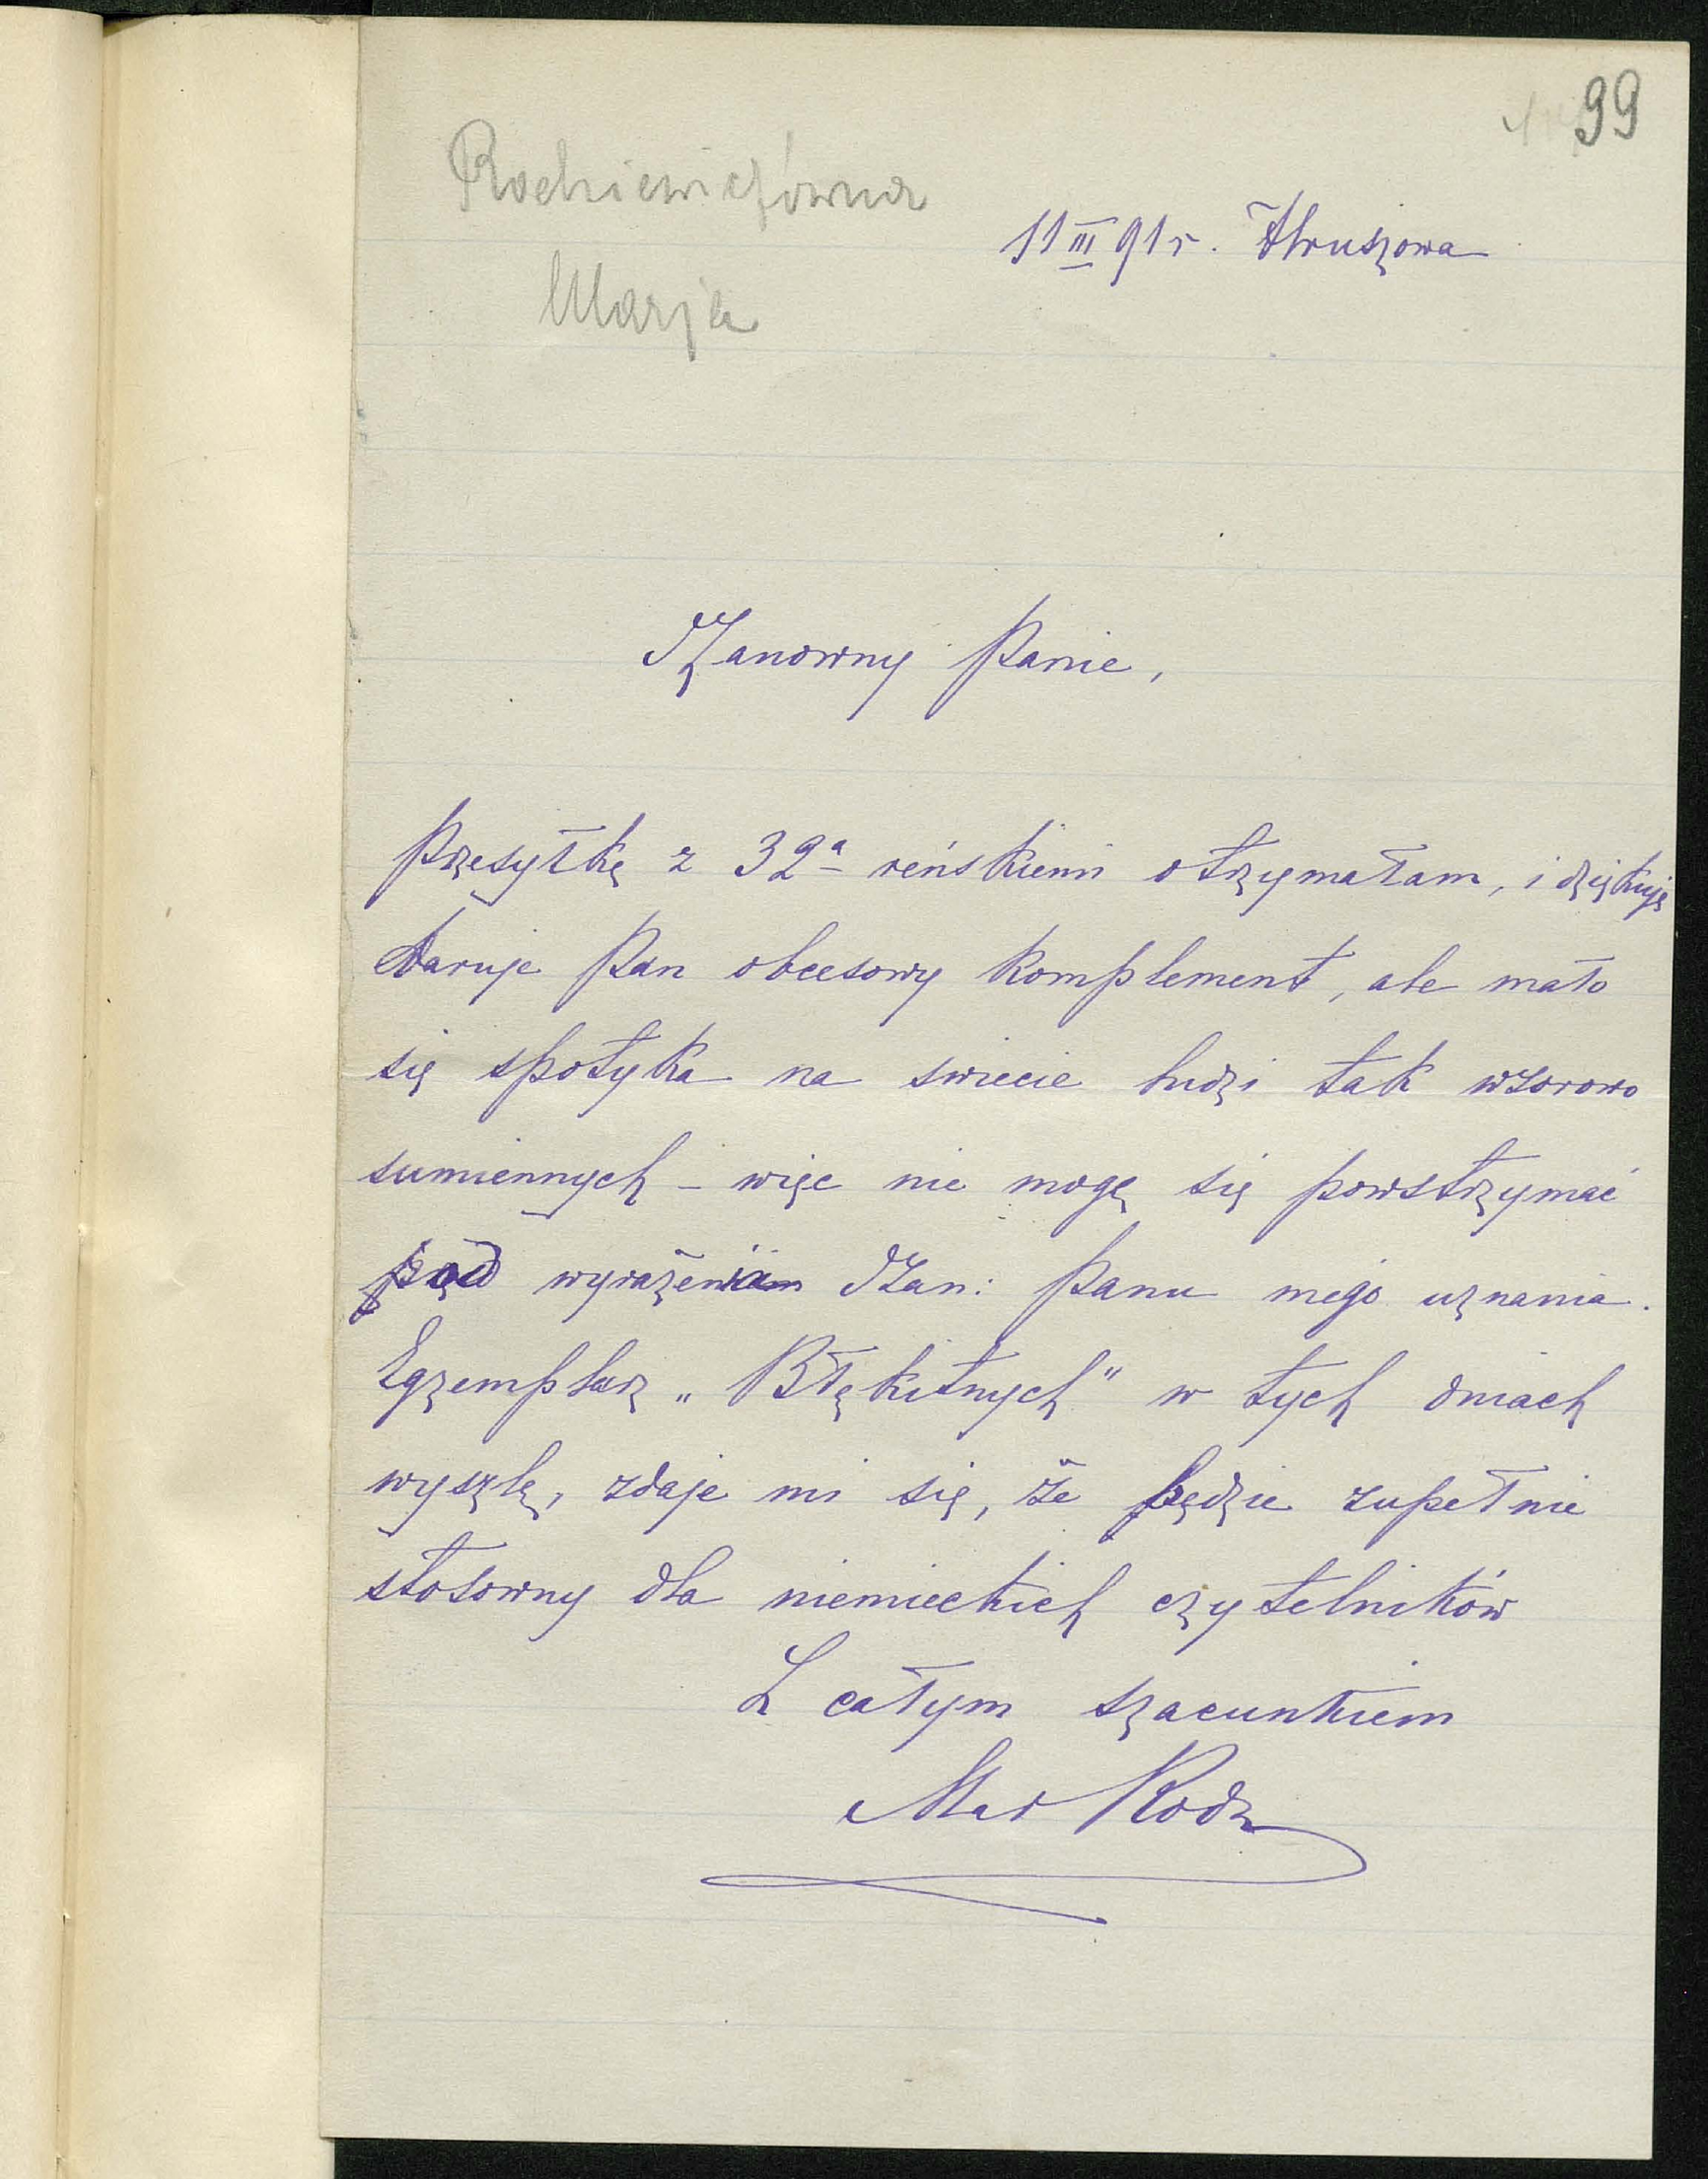 99
Rodziewiczówna
Marja
11 III 91 r. Hruszowa
Szanowny Panie,
Przesyłkę z 32ª reńskiemi otrzymałam, i dziękuję
Daruje Pan obcesowy komplement, ale mało
się spotyka na świecie ludzi tak wzorowo
sumiennych – więc nie mogę się powstrzymać
wyrażeniam Szan: Panu mego uznania.
Egzemplarz „Błękitnych" w tych dniach
wyszlę, zdaje mi się, że będzie zupełnie
stosowny dla niemieckich czytelników
Z całym szacunkiem
Mar Rodz